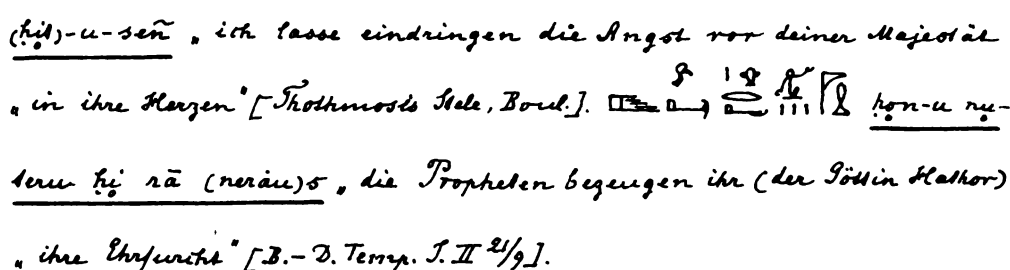 (ḥịt)-u-señ „ ich lasse eindringen die Angst vor deiner Majestät
„ in ihre Herzen“ [Thothmosis Stele, Boul.]. ḥọn-u nụ-
teru ḥị rā (nerāu)s „ die Propheten bezeugen ihr (der Göttin Hathor)
„ ihre Ehrfurcht“ [B.-D. Temp. I. II 21/9].